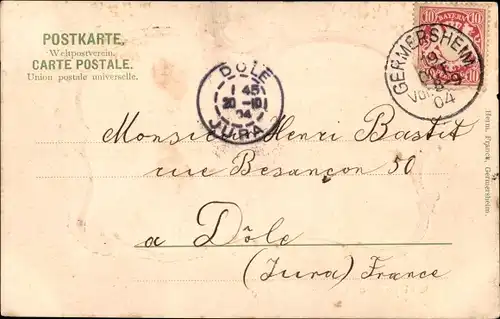 POSTKARTE.
Weltpostverein.
CARTE POSTALE.
Union postale universelle.
10 BAYERN 10
GERMERSHEIM
Vor.
04
DOLE
1 45
20 - 10
04
JURA
Monsieur Henri Bastit
rue Besançon 50
a Dôle
(Jura) France
Germersheim.